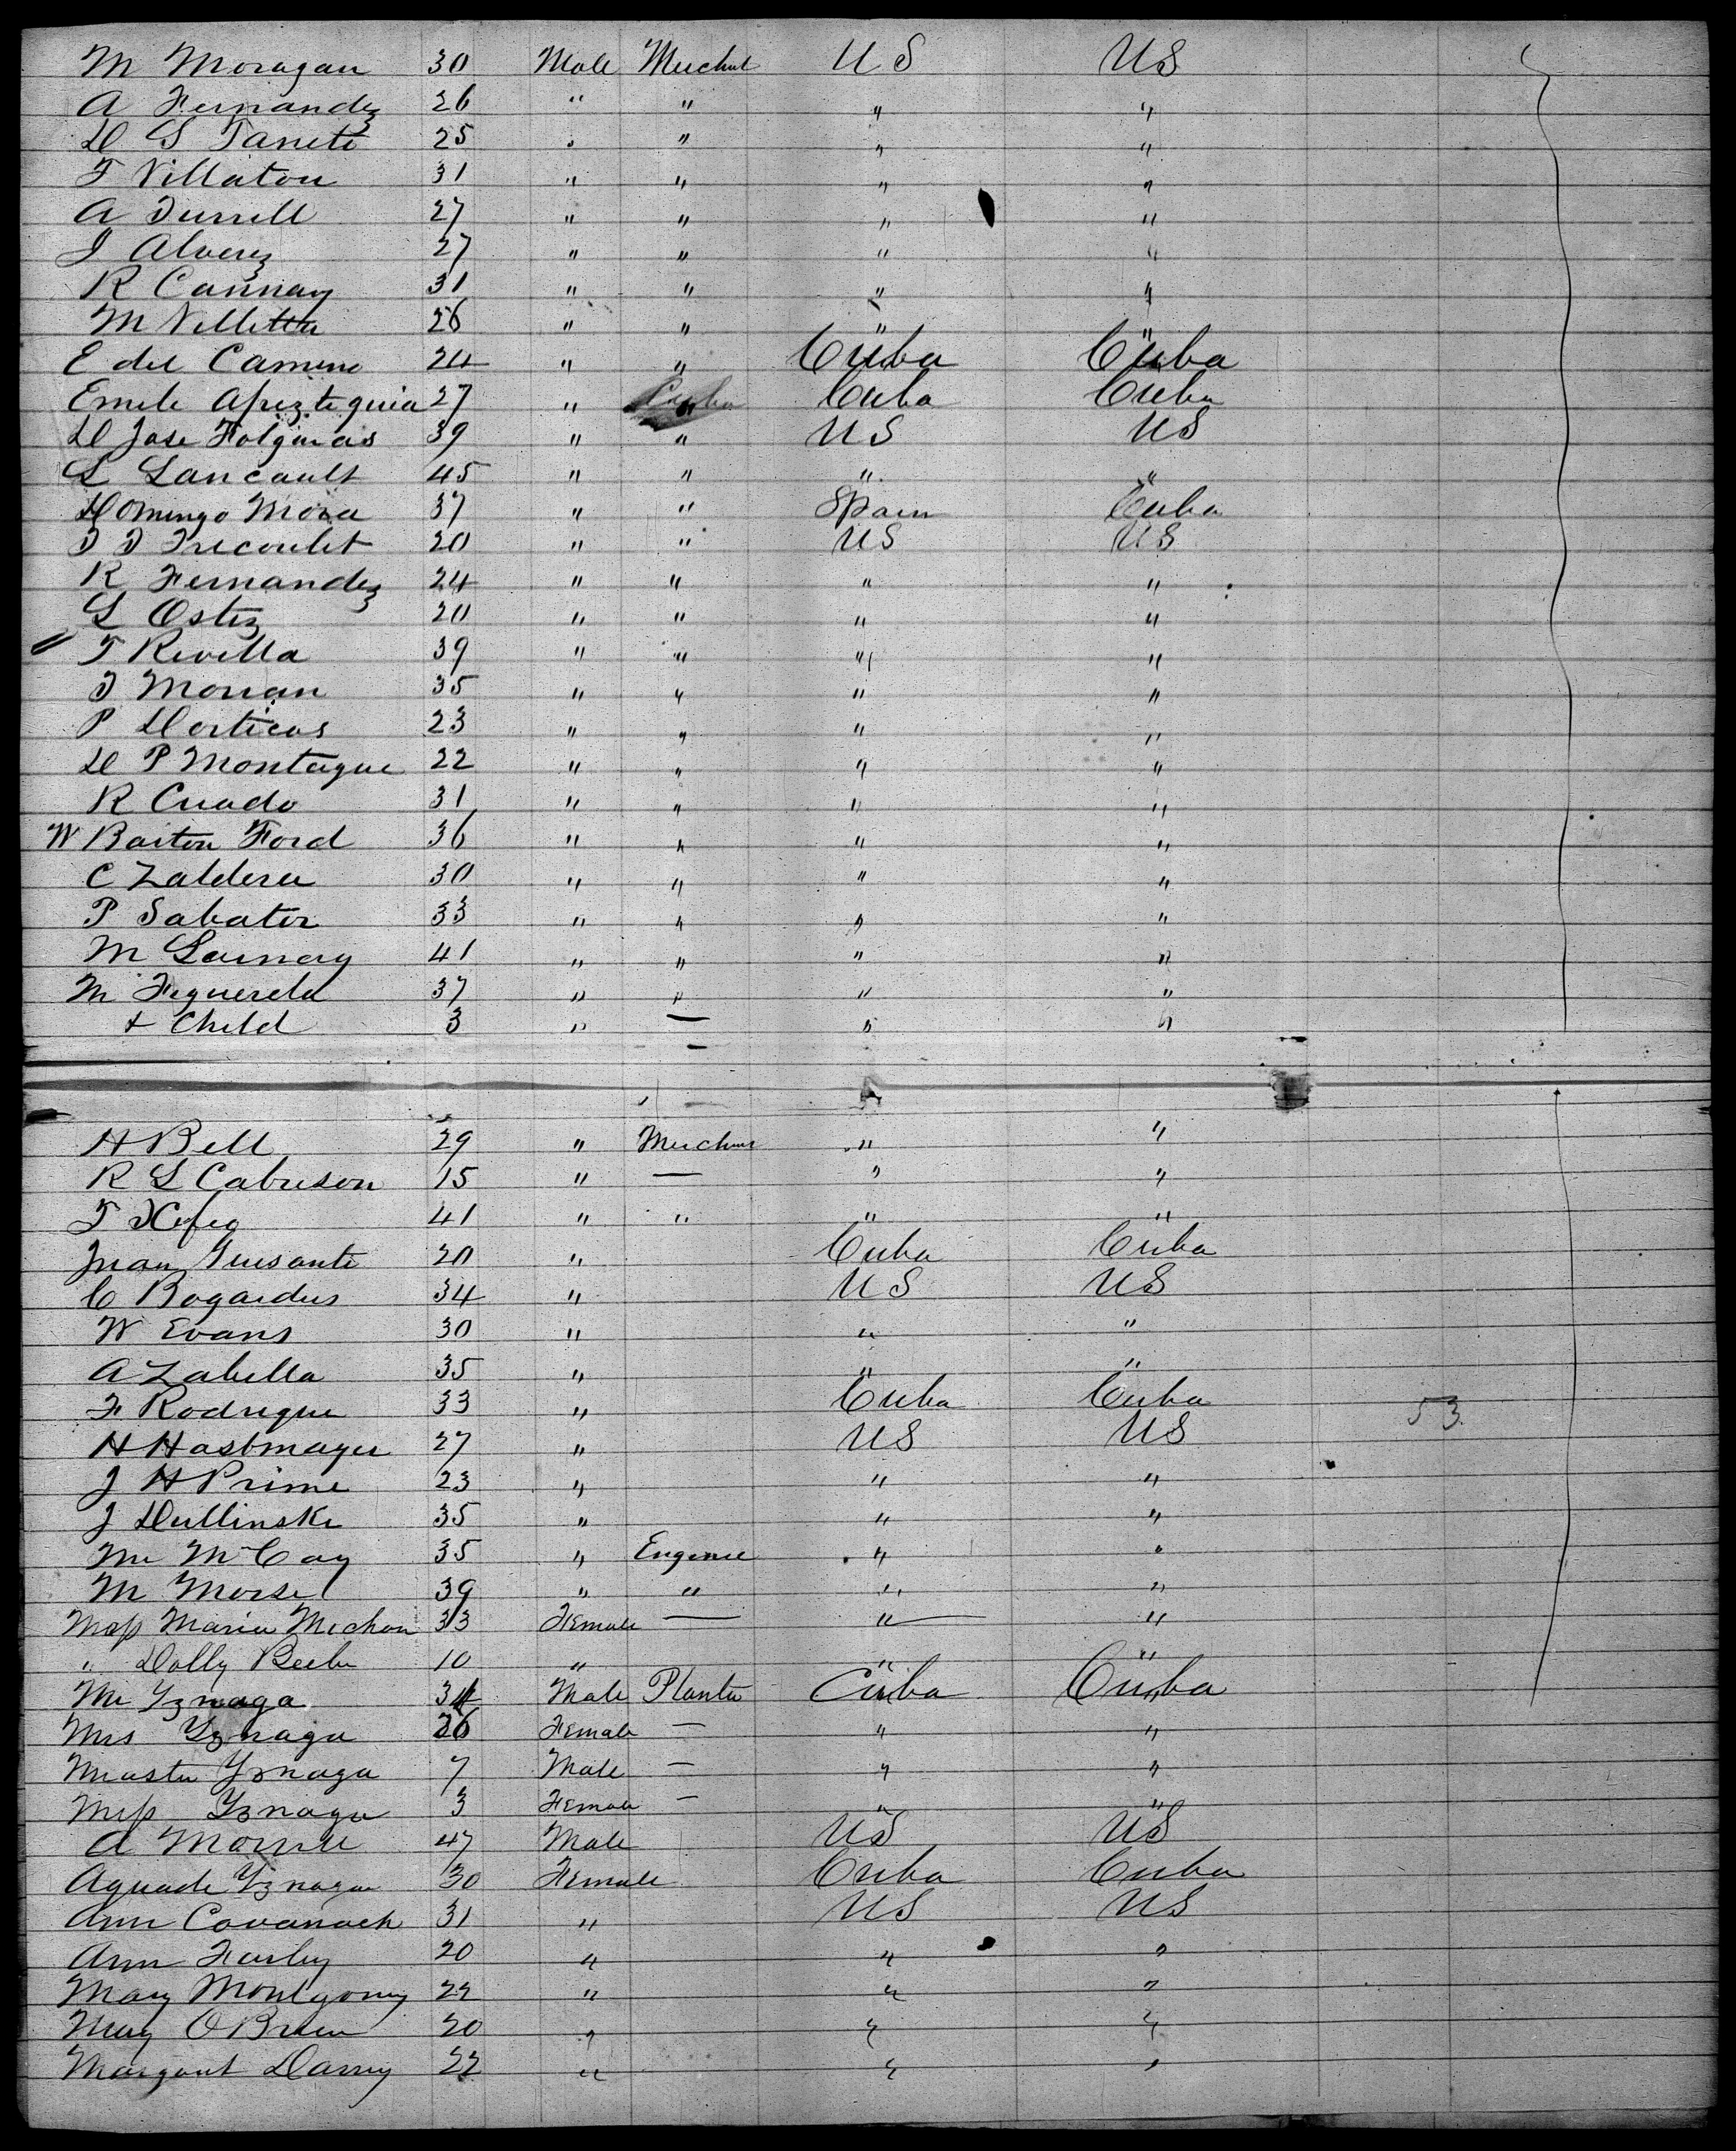 M Moragan 30 Male Mercht US US
A Fernandez 26 " " " "
D S Tanete 25 " " " "
F Villaton 31 " " " "
A Turrell 27 " " " "
J Alverez 27 " " " "
R Cannay 31 " " " "
M Villetta 26 " " " "
E del Camino 24 " " Cuba Cuba
Emele Apezteguia 27 " " Cuba Cuba
D Jose Folgueras 39 " " US US
L Lancault 45 " " " "
Domingo Mora 37 " " Spain Cuba
J J Trecoulet 20 " " US US
R Fernandez 24 " " " "
L Ostez 20 " " " "
T Revella 39 " " " "
J Morran 35 " " " "
P Dorticos 23 " " " "
D P Montague 22 " " " "
R Cuado 31 " " " "
W Barton Ford 36 " " " "
C Zaldera 30 " " " "
P Sabater 33 " " " "
M Larnay 41 " " " "
M Figuereda 37 " " " "
+ Child 3 " — " "
H Bell 29 " Merchant " "
R L Cabreson 15 " — " "
T 41 " " " "
Juan 20 " Cuba Cuba
C Bogardus 34 " US US
W Evans 30 " " "
A Zabella 35 " " "
F Rodrigue 33 " Cuba Cuba 53
H Hastmayer 27 " US US
J H Prime 23 " " "
J Dullinske 35 " " "
Mr McCay 35 " Enginee " "
M Morse 39 " " " "
Miss Maria Mechan 33 Female — " "
" Dolly Beebe 10 " " "
Mr Yznaga 34 Male Planter Cuba Cuba
Mrs Yznaga 26 Female — " "
Master Yznaga 7 Male — " "
Miss Yznaga 3 Female — " "
A 47 Male US US
Aguade Yznaga 30 Female Cuba Cuba
Ann Cavanach 31 " US US
Ann Farley 20 " " "
Mary Montgomy 22 " " "
Mary OBrien 20 " " "
Margaret Darcy 22 " " "